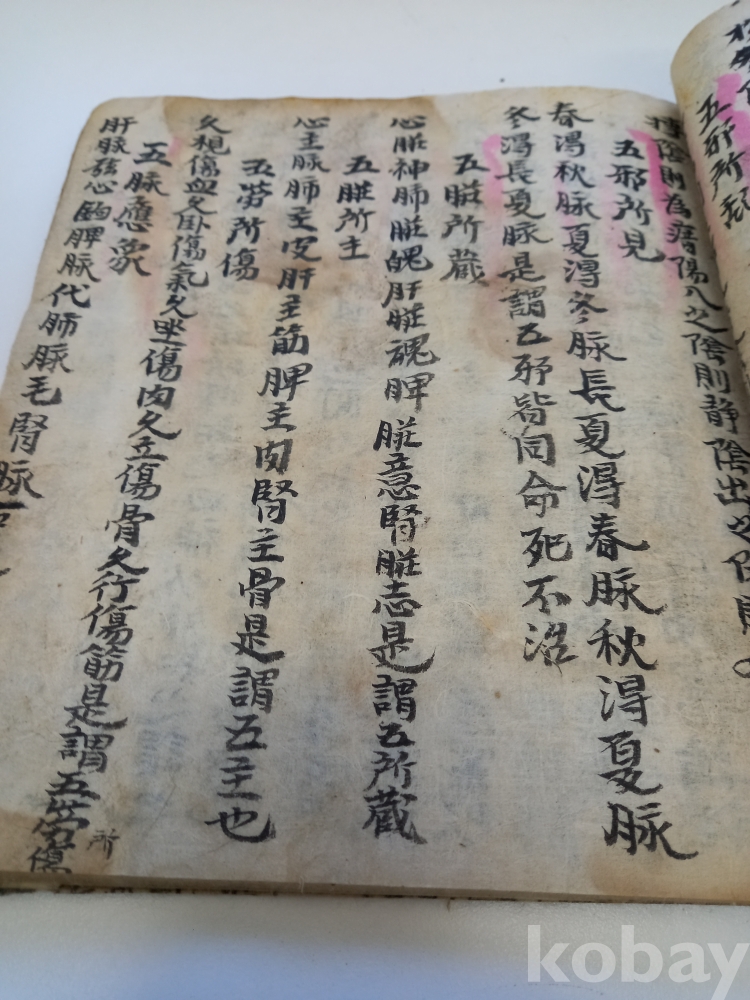 搏陰則為瘖陽入之陰則静陰出之
五邪所見
春淂秋脉夏淂冬脉長夏淂春脉秋淂夏脉
冬淂長夏脉是謂五邪皆同命死不治
五脏所蔵
心脏神肺脏魄肝脏魂脾脏意腎脏志是謂五所蔵
五脏所主
心主脉肺主皮肝主筋脾主肉腎主骨是謂五主也
五劳所傷
久視傷血久卧傷氣久坐傷肉久立傷骨久行傷筋是謂五劳所傷
五脉應象
肝脉弦心鈎脾脉代肺脉毛腎脉石
五邪所
kobay